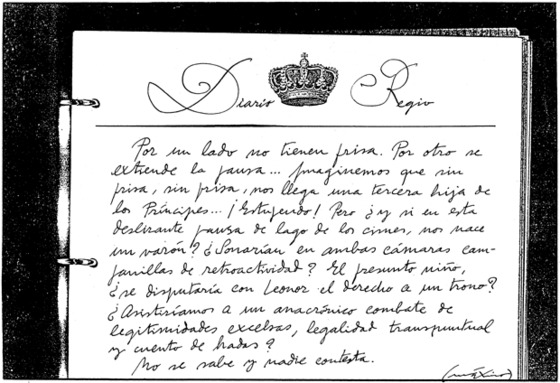 Diario Regio
Por un lado no tienen prisa. Por otro se
extiende la pausa... Imaginemos que sin
prisa, sin prisa, nos llega una tercera hija de
los Príncipes... ¡Estupendo! Pero ¿y si en esta
deslizante pausa de lago de los cisnes, nos nace
un varón? ¿Sonarían en ambas cámaras cam-
panillas de retroactividad? El presunto niño,
¿se disputaría con Leonor el derecho a un trono?
¿Asistiríamos a un anacrónico combate de
legitimidades excelsas, legalidad transpuntual
y cuento de hadas?
No se sabe y nadie contesta.
(máximo)